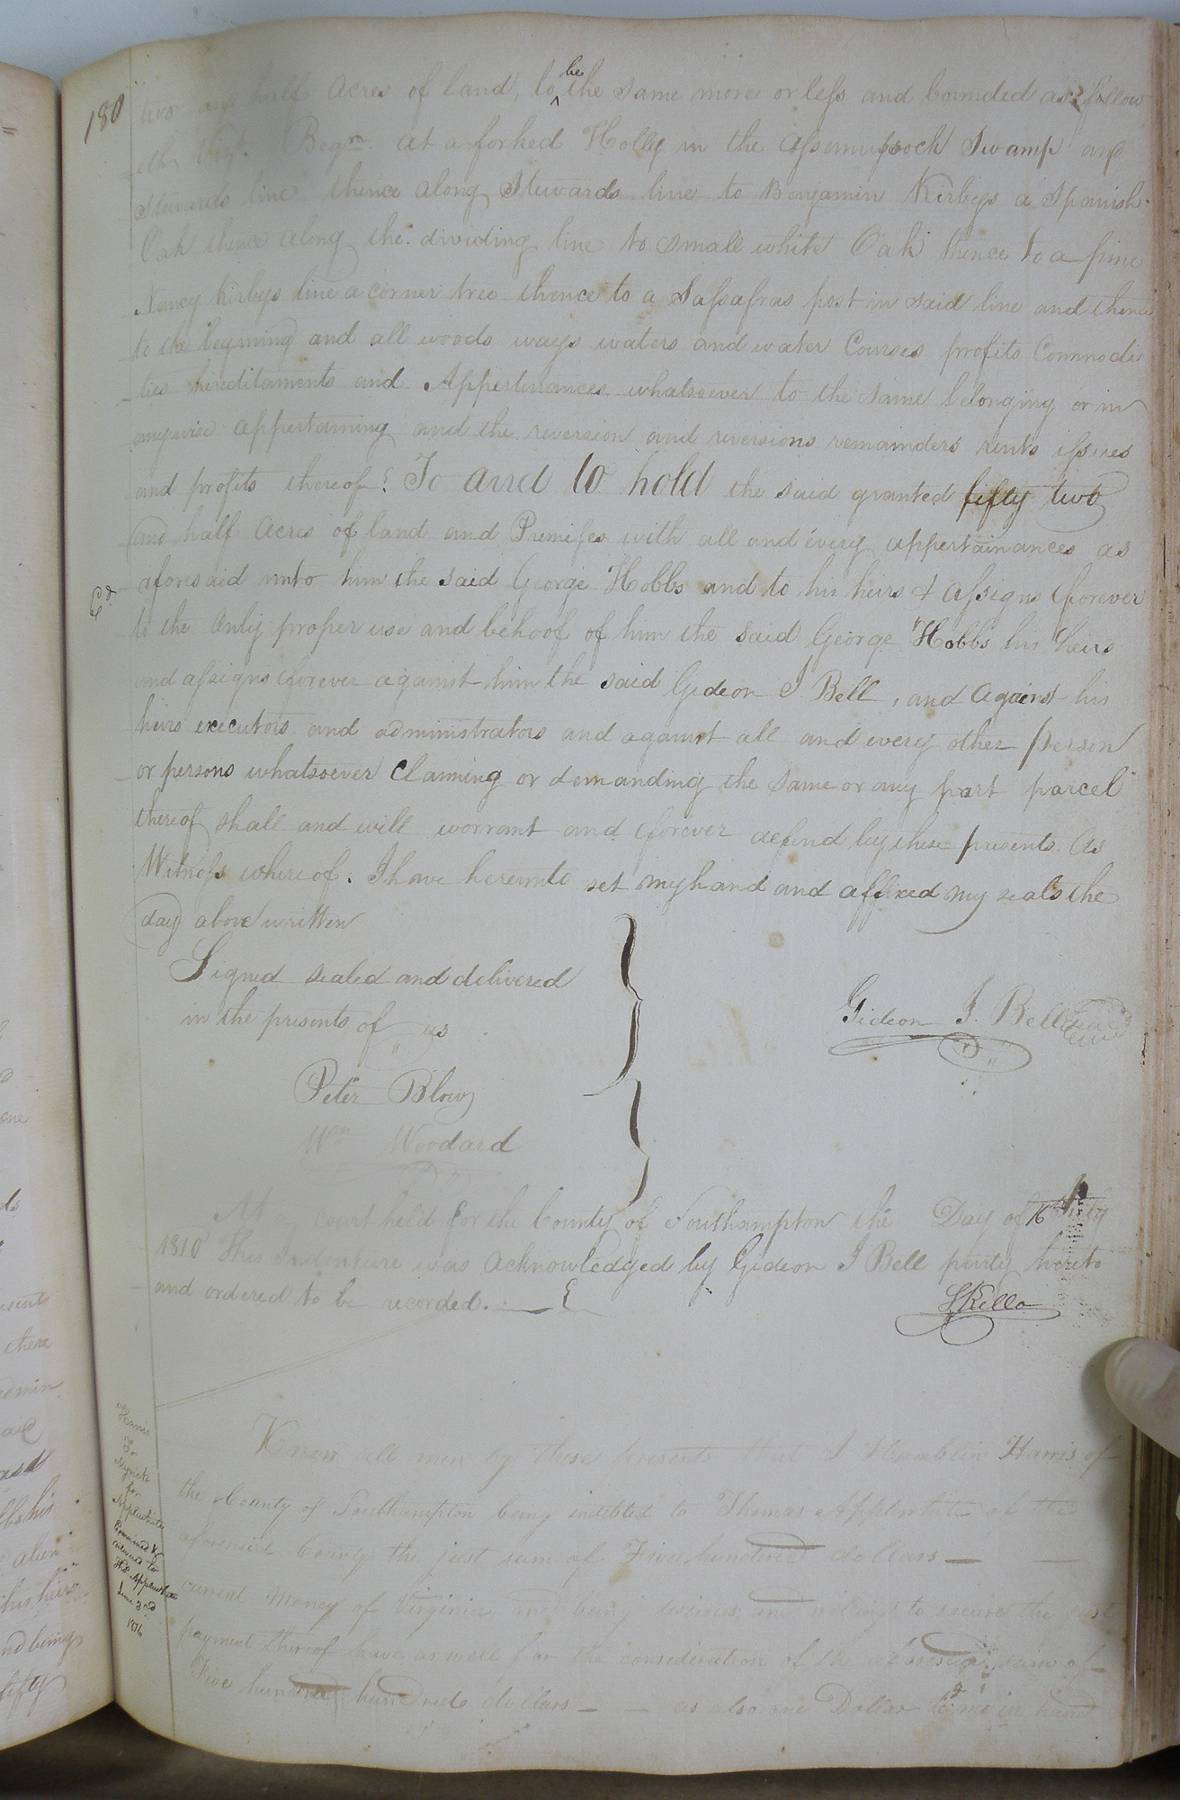 180
two and half acres of land, to be the same more or less and bounded as follow
eth Viz. Begn. at a forked Holly in the Assamussock Swamp and
Stewards line thence along Stewards line to Benjamin Kirbys a Spanish
Oak thence along the dividing line to small white Oak thence to a pine
Nancy Kirbys line a corner tree thence to a Sassafras post in said line and thence
to the beginning and all woods ways waters and water Courses profits Commodi
ties hereditaments and Appertenances whatsoever to the same belonging or in
anywise appertaining and the reversion and reversions remainders rents issues
and profits thereof: To and to hold the said granted fifty two
and half acres of land and Premises with all and every appertainances as
aforesaid unto him the said George Hobbs and to his heirs & assigns forever
Ed
to the Only proper use and behoof of him the said George Hobbs his heirs
and assigns forever against him the said Gideon J Bell, and against his
heirs executors and administrators and against all and every other person
or persons whatsoever claiming or demanding the same or any part parcel
thereof shall and will warrant and forever defend by these presents. As
Witness whereof. I have hereunto set my hand and affixed my seals the
day above written
Signed sealed and delivered
in the presents of us
Gideon J. Bell seal
Peter Blow
Wm Woodard
At court held for the County of Southampton the Day of 16th July
1810 This Indenture was acknowledged by Gideon J Bell party hereto
and ordered to be recorded.
S Kello
Harris
to
for
Examined &
delivered to
June 3rd
1816
Know all men by these presents that I Hamblin Harris of
the County of Southampton being indebted to Thomas Applewhite of the
aforesaid County the just sum of Five hundred dollars
current Money of Virginia and being desirous and willing to secure the just
payment thereof have as well for the consideration of the aforesaid sum of
Five hundred hundreds dollars as also one Dollar to me in hand